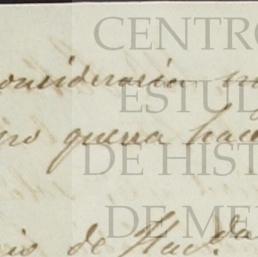 CENTRO
consideración
ESTUD
quera hace
DE HIST
DE ME
io de Hac.da